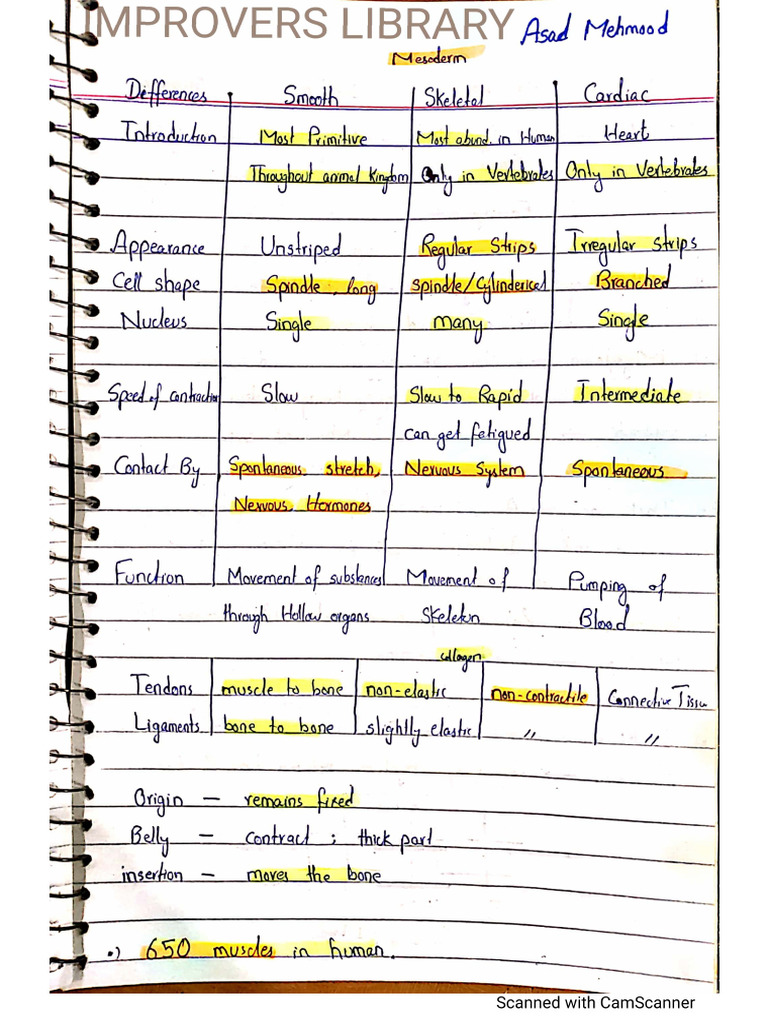 IMPROVERS LIBRARY Asad Mehmood
Mesoderm
Differences Smooth Skeletal Cardiac
Introduction Most Primitive Most abund. in Human Heart
Throughout animal Kingdom Only in Vertebrates Only in Vertebrates
Appearance Unstriped Regular Strips Irregular strips
Cell shape Spindle, long spindle/Cylinderical Branched
Nucleus Single many Single
Speed of contraction Slow Slow to Rapid Intermediate
can get fetigued
Contact By Spontaneous, stretch, Nervous System Spontaneous
Nervous, Hormones
Function Movement of substances Movement of Pumping of
through Hollow organs Skeleton Blood
collagen
Tendons muscle to bone non-elastic non-contractile Connective Tissu
Ligaments bone to bone slightly elastic " "
Origin – remains fixed
Belly – contract ; thick part
insertion – moves the bone
•) 650 muscles in human.
Scanned with CamScanner